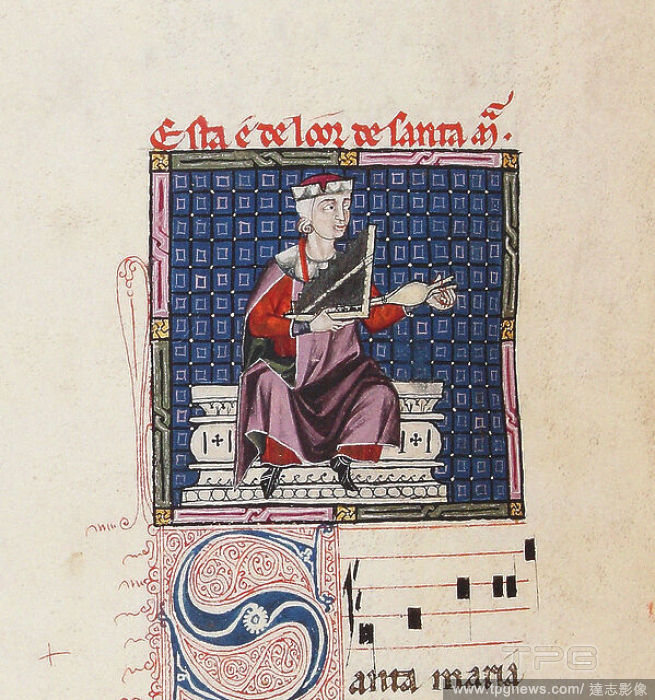 Esta é de loor de santa mã.
S
anta maria
TPG
www.tpgnews.com/達志影像